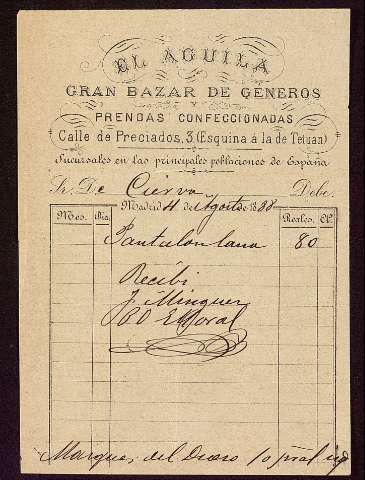 EL AGUILA
GRAN BAZAR DE GENEROS
Y
PRENDAS CONFECCIONADAS
Calle de Preciados, 3, (Esquina á la de Tetuan)
Sucursales en las principales poblaciones de España
Sr. D. Cuervo Debe.
Madrid 4 de Agosto de 1888
Mes. Dia. Reales. Cs.
Pantalon lana 80
Recibi
J. Minguez
PO EMoral
Marques del Duero 10 pral izq